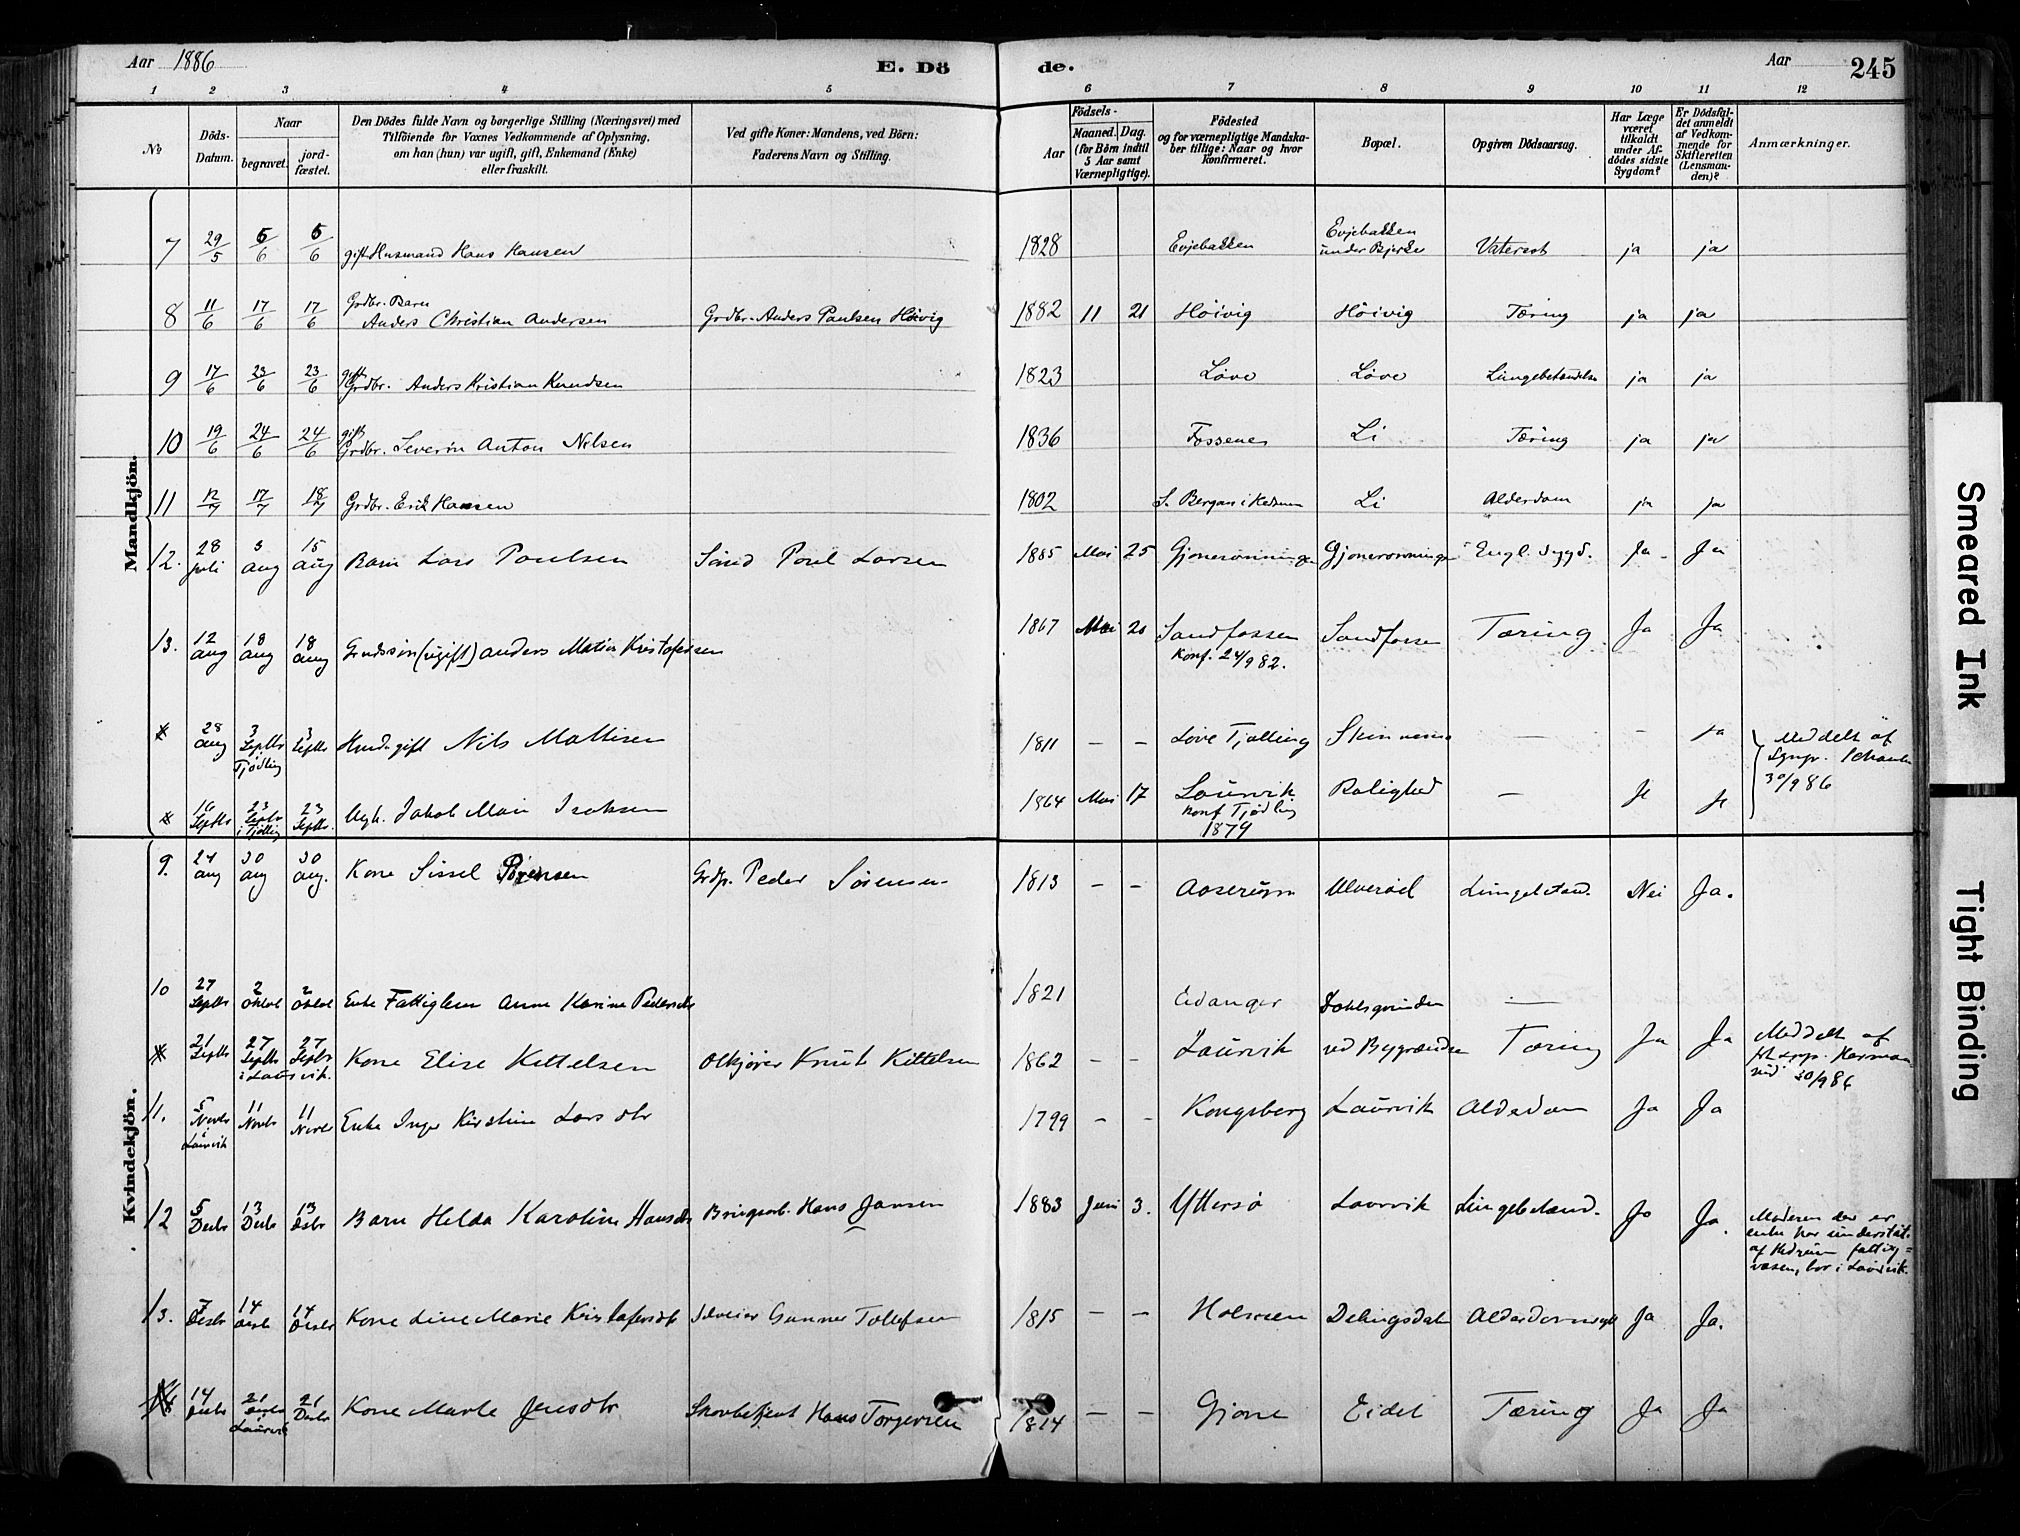 Aar 1886
E. Dö
de.
Aar
245
1 2 3 4 5 6 7 8 9 10 11 12
No
Döds-Datum.
Naar
begravet.
jord-fæstet.
Den Dödes fulde Navn og borgerlige Stilling (Næringsvei) med
Tilföiende for Voxnes Vedkommende af Oplysning,
om han (hun) var ugift, gift, Enkemand (Enke)
eller fraskilt.
Ved gifte Koner: Mandens, ved Börn:
Faderens Navn og Stilling.
Födsels-
Aar
Maaned. Dag.
(for Börn indtil
5 Aar samt
Værnepligtige).
Födested
og for værnepligtige Mandska-
ber tillige: Naar og hvor
konfirmeret.
Bopæl.
Opgiven Dödsaarsag.
Har Læge
været
tilkaldt
under Af-
dödes sidste
Sygdom?
Er Dödsfal-
det anmeldt
af Vedkom-
mende for
Skifteretten
(Lensman-
den)?
Anmærkninger.
Mandkjön.
7 29/5 5/6 5/6 gift Husmand Hans Hansen 1828 Evjebakken Evjebakken under Bjerke Vatersot ja ja
8 11/6 17/6 17/6 Grdbr. Barn Anders Christian Andersen Grdbr. Anders Paulsen Höivig 1882 11 21 Höivig Höivig Tæring ja ja
9 17/6 23/6 23/6 gift Grdbr. Anders Kristian Knudsen 1823 Löve Löve Lungebetændelse ja ja
10 19/6 24/6 24/6 gift Grdbr. Severin Anton Nilsen 1836 Fossenes Li Tæring ja ja
11 12/7 17/7 18/7 Grdbr. Erik Hansen 1802 S. Bergan i Hedrum Li Alderdom ja ja
12. 28 juli 3 aug 15 aug Barn Lars Paulsen Smed Poul Larsen 1885 Mai 25 Gjonerønningen Gjonerønningen Engl. Sygd. Ja Ja
13. 12 aug 18 aug 18 aug Grdssøn (ugift) Anders Matias Kristofersen 1867 Mai 20 Sandfossen Konf. 24/9 82. Sandfossen Tæring Ja Ja
28 aug 3 Septb Tjødling 3 Septb gift Nils Mattisen 1811 – – Löve Tjølling – – Ja Meddelt af
30/9 86
16 Septb 23 Septb i Tjølling 23 Septb. Ugk. Jakob Mari Isaksen 1864 Mai 17 Laurvik Konf Tjødling 1879 Rolighed – Ja Ja
Kvindekjön.
9. 24 aug 30 aug 30 aug. Kone Sissel Sørensen Grdp. Peder Sörensen 1813 – – Aaserum Ulveröd Lungebetænd. Nei Ja.
10 27 Septb 2 Oktob 2 Oktob Enke Fattiglem Anne Karine Pedersdtr 1821 Eidanger –
21 Septb 27 Septb i Laurvik. 27 Septb Kone Elise Kittelsen Ølkjører Knut Kittelsen 1862 – – Laurvik ved Bygrændsen Tæring Ja Ja Meddelt af
30/9 86
11. 5 Novbr Laurvik 11 Novbr 11 Novbr Enke Inger Kirstine Larsdtr 1799 – – Kongsberg Laurvik Alderdom Ja Ja
12 5 Decbr 13 Decbr 13 Decbr Barn Helda Karoline Hansdtr Hans Jansen 1883 Juni 3. Yttersö Laurvik Lungebetænd. Ja Ja. Moderen der er
enke har understøt.
af Hedrum fattig=
væsen, bor i Laurvik.
13. 7 Decbr 14 Decb 14 Decbr Kone Line Marie Kristofersdtr Gunner Tollefsen 1815 – – Holmen Delingsdal Alderdomssyg Ja Ja.
14 Decbr 21 Decbr Laurvik 21 Decbr Kone Marte Jensdtr Skovbetjent Hans Torgersen 1814 – – Gjone Eidet Tæring Ja Ja
Smeared Ink
Tight Binding